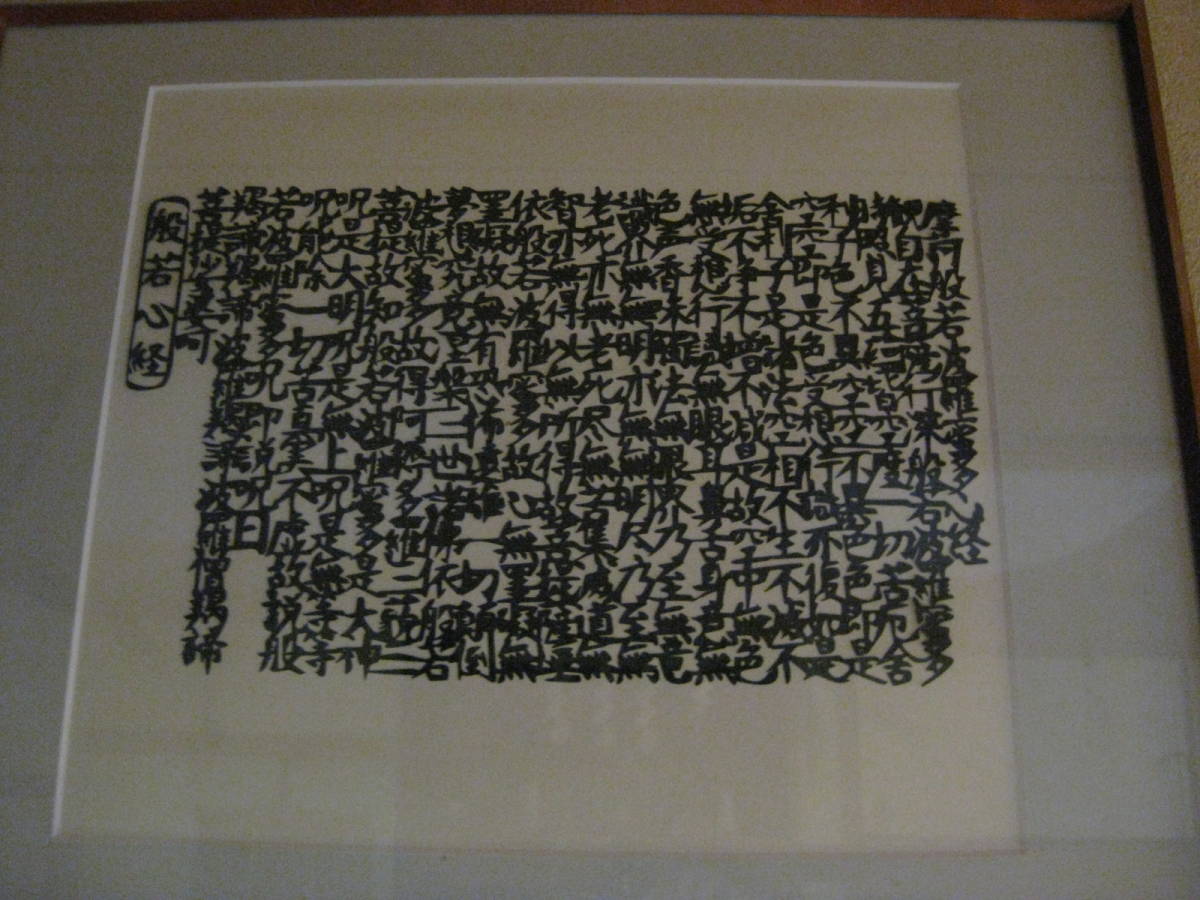 摩訶般若波羅蜜多心経
観自在菩薩行深般若波羅蜜多
時照見五蘊皆空度一切苦厄舎
利子色不異空空不異色色即是
空空即是色受想行識亦復如是
舎利子是諸法空相不生不滅不
垢不浄不増不減是故空中無色
無受想行識無眼耳鼻舌身意無
色声香味触法無眼界乃至無意
識界無無明亦無無明尽乃至無
老死亦無老死尽無苦集滅道無
智亦無得以無所得故菩提薩埵
依般若波羅蜜多故心無罣礙無
罣礙故無有恐怖遠離一切顛倒
夢想究竟涅槃三世諸佛依般若
波羅蜜多故得阿耨多羅三藐三
菩提故知般若波羅蜜多是大神
呪是大明呪是無上呪是無等等
呪能除一切苦真実不虚故説般
若波羅蜜多呪即説呪曰
羯諦羯諦波羅羯諦波羅僧羯諦
菩提娑婆訶
般若心経